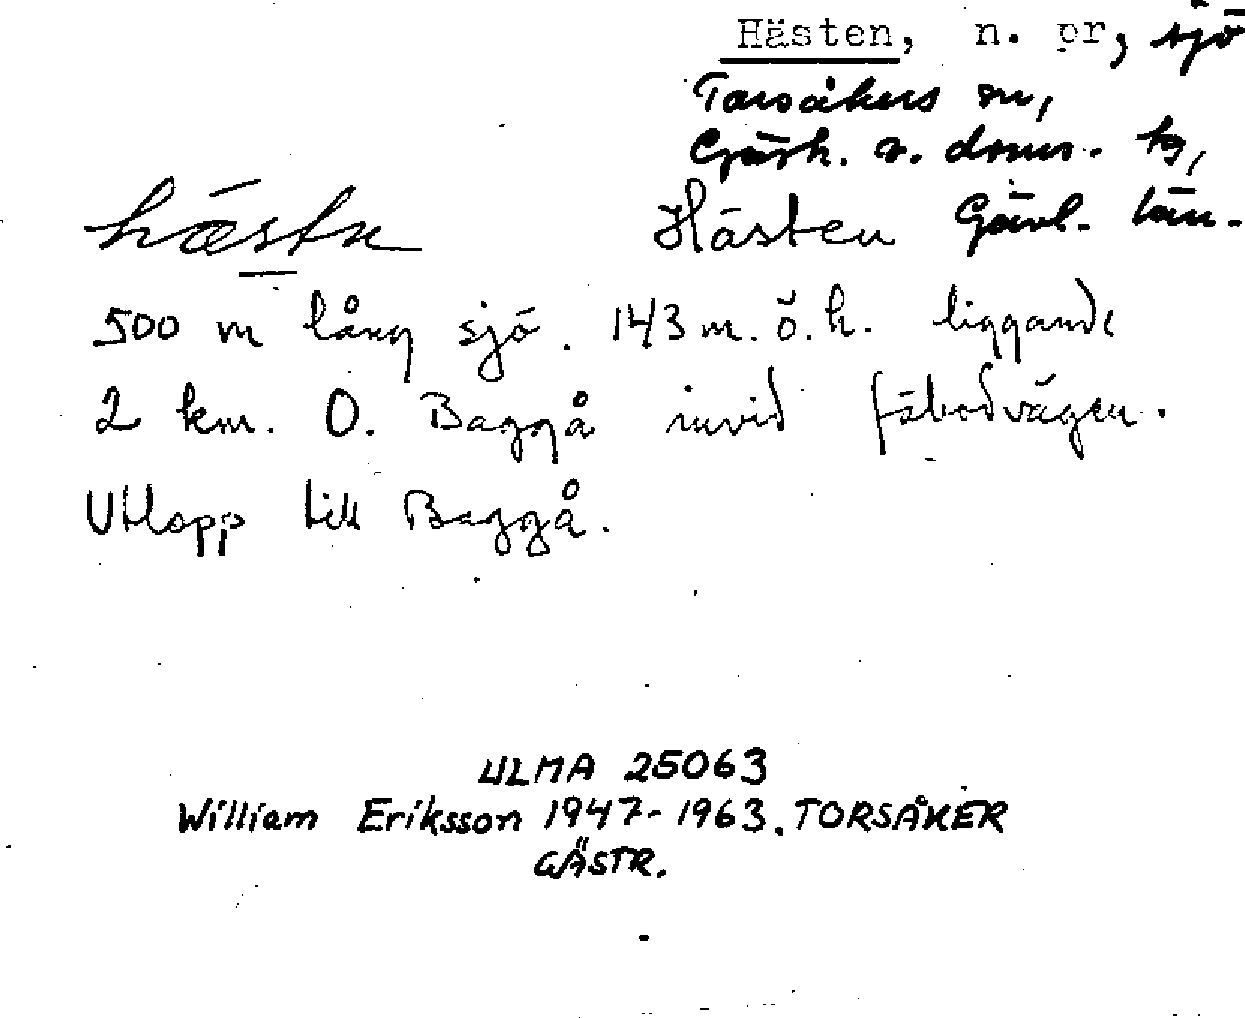 Hästen, n. pr, sjö
Torsåkers sn,
Gästr. ö. doms. tg,
hæstn Hästen Gävl. län.
500 m lång sjö. 143 m. ö. h. liggande
2 km. O. Baggå invid fäbodvägen.
Utlopp till Baggå.
ULMA 25063
William Eriksson 1947-1963. TORSÅKER
GÄSTR.